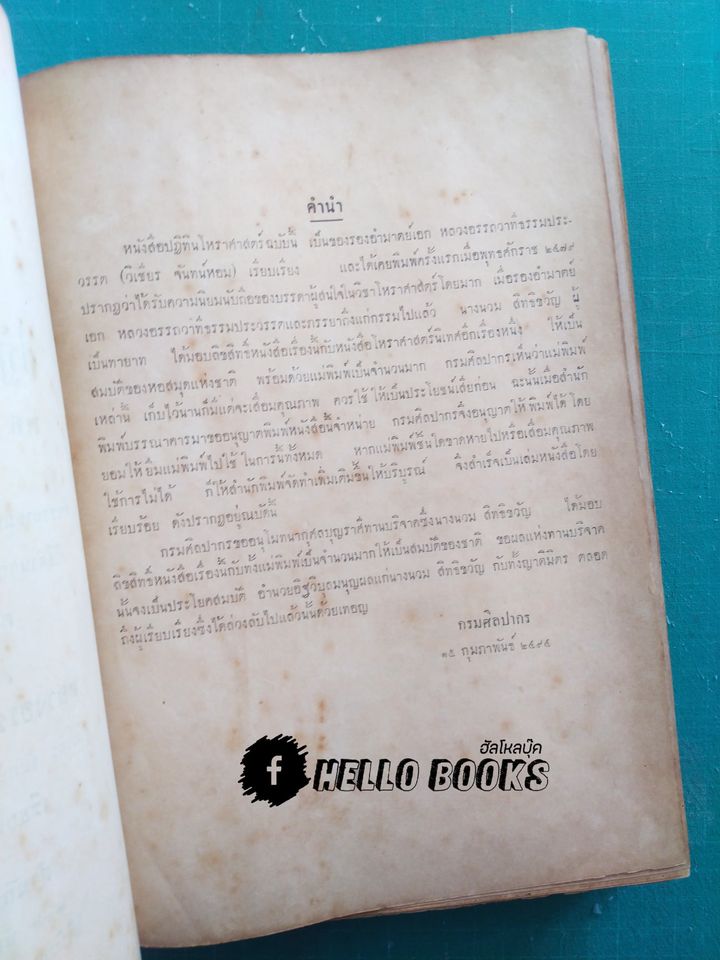 คำนำ
หนังสือปฏิทินโหราศาสตร์ฉบับนี้ เป็นของรองอำมาตย์เอก หลวงอรรถวาทีธรรมประ-
วรรต (วิเชียร จันทน์หอม) เรียบเรียง และได้เคยพิมพ์ครั้งแรกเมื่อพุทธศักราช ๒๔๗๙
ปรากฏว่าได้รับความนิยมนับถือของบรรดาผู้สนใจในวิชาโหราศาสตร์โดยมาก เมื่อรองอำมาตย์
เอก หลวงอรรถวาทีธรรมประวรรตและภรรยาถึงแก่กรรมไปแล้ว นางนวม สิทธิขวัญ ผู้
เป็นทายาท ได้มอบลิขสิทธิ์หนังสือเรื่องนี้กับหนังสือโหราศาสตร์นิเทศอีกเรื่องหนึ่ง ให้เป็น
สมบัติของหอสมุดแห่งชาติ พร้อมด้วยแม่พิมพ์เป็นจำนวนมาก กรมศิลปากรเห็นว่าแม่พิมพ์
เหล่านี้ เก็บไว้นานก็มีแต่จะเสื่อมคุณภาพ ควรใช้ให้เป็นประโยชน์เสียก่อน ฉะนั้นเมื่อสำนัก
พิมพ์บรรณาคารมาขออนุญาตพิมพ์หนังสือนี้จำหน่าย กรมศิลปากรจึงอนุญาตให้พิมพ์ได้ โดย
ยอมให้ยืมแม่พิมพ์ไปใช้ในการนี้ทั้งหมด หากแม่พิมพ์ชิ้นใดขาดหายไปหรือเสื่อมคุณภาพ
ใช้การไม่ได้ ก็ให้สำนักพิมพ์จัดทำเพิ่มเติมขึ้นให้บริบูรณ์ จึงสำเร็จเป็นเล่มหนังสือโดย
เรียบร้อย ดังปรากฏอยู่ณบัดนี้
กรมศิลปากรขออนุโมทนากุศลบุญราศีทานบริจาคซึ่งนางนวม สิทธิขวัญ ได้มอบ
ลิขสิทธิ์หนังสือเรื่องนี้กับทั้งแม่พิมพ์เป็นจำนวนมากให้เป็นสมบัติของชาติ ขอผลแห่งทานบริจาค
นั้นจงเป็นประโยคสมบัติ อำนวยอิฐวิบุลมนุญผลแก่นางนวม สิทธิขวัญ กับทั้งญาติมิตร ตลอด
ถึงผู้เรียบเรียงซึ่งได้ล่วงลับไปแล้วนั้นด้วยเทอญ
กรมศิลปากร
๑๕ กุมภาพันธ์ ๒๔๙๕
ฮัลโหลบุ๊ค
f HELLO BOOKS